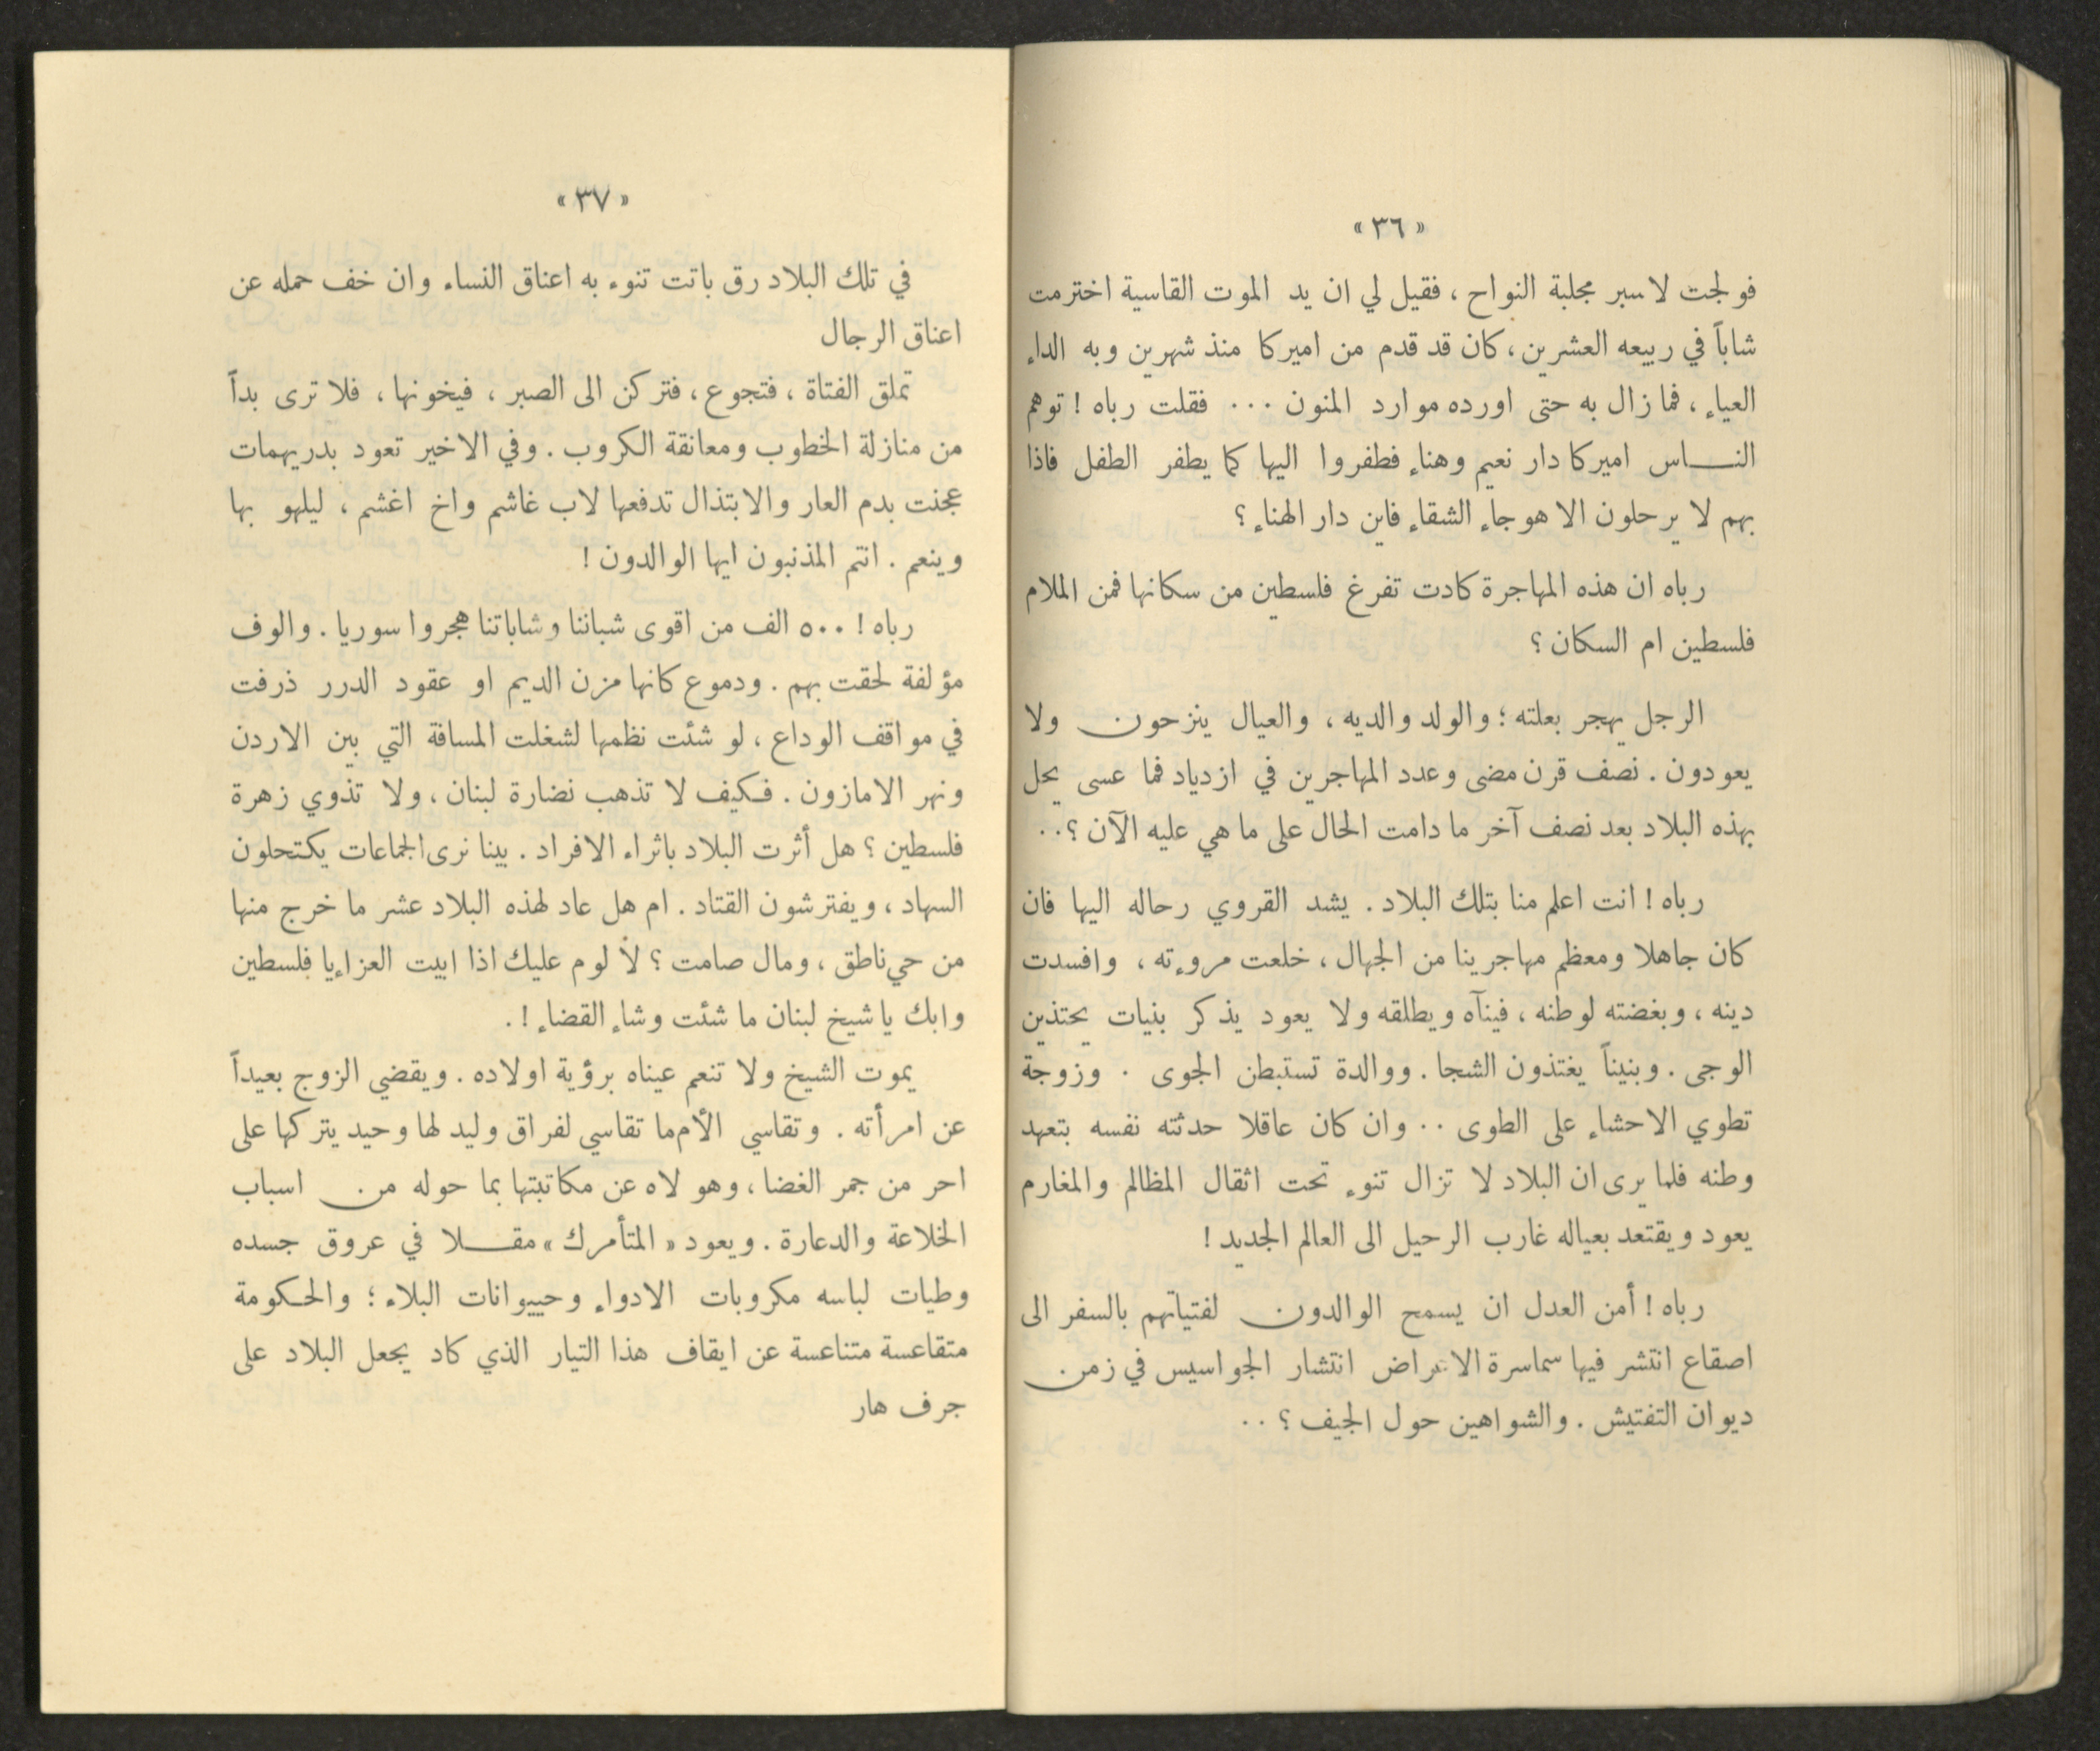 « ٣٦ »
فولجت لاسبر مجلبة النواح ، فقيل لي ان يد الموت القاسية اخترمت
شاباً في ربيعه العشرين ، كان قد قدم من اميركا منذ شهرين وبه الداء
العياء ، فما زال به حتى اورده موارد المنون ... فقلت رباه ! توهم
النـاس اميركا دار نعيم وهناء فطفروا اليها كما يطفر الطفل فاذا
بهم لا يرحلون الا هوجاء الشقاء فاين دار الهناء ؟
رباه ان هذه المهاجرة كادت تفرغ فلسطين من سكانها فمن الملام
فلسطين ام السكان ؟
الرجل يهجر بعلته ؛ والولد والديه ، والعيال ينزحون ولا
يعودون . نصف قرن مضى وعدد المهاجرين في ازدياد فما عسى يحل
بهذه البلاد بعد نصف آخر ما دامت الحال على ما هي عليه الآن ؟..
رباه ! انت اعلم منا بتلك البلاد . يشد القروي رحاله اليها فان
كان جاهلا ومعظم مهاجرينا من الجهال ، خلعت مروءته ، وافسدت
دينه ، وبغضته لوطنه ، فينآه ويطلقه ولا يعود يذكر بنيات يحتذين
الوجى . وبنيناً يغتذون الشجا . ووالدة تستبطن الجوى . وزوجة
تطوي الاحشاء على الطوى .. وان كان عاقلا حدثته نفسه بتعهد
وطنه فلما يرى ان البلاد لا تزال تنوء تحت اثقال المظالم والمغارم
يعود ويقتعد بعياله غارب الرحيل الى العالم الجديد !
رباه ! أمن العدل ان يسمح الوالدون لفتياتهم بالسفر الى
اصقاع انتشر فيها سماسرة الاعراض انتشار الجواسيس في زمن
ديوان التفتيش . والشواهين حول الجيف ؟ ..
« ٣٧ »
في تلك البلاد رق باتت تنوء به اعناق النساء وان خف حمله عن
اعناق الرجال
تملق الفتاة ، فتجوع ، فتركن الى الصبر ، فيخونها ، فلا ترى بداً
من منازلة الخطوب ومعانقة الكروب . وفي الاخير تعود بدريهمات
عجنت بدم العار والابتذال تدفعها لاب غاشم واخ اغشم ، ليلهو بها
وينعم . انتم المذنبون ايها الوالدون !
رباه ! ٥٠٠ الف من اقوى شباننا وشاباتنا هجروا سوريا . والوف
مؤلفة لحقت بهم . ودموع كانها مزن الديم او عقود الدرر ذرفت
في مواقف الوداع ، لو شئت نظمها لشغلت المسافة التي بين الاردن
ونهر الامازون . فكيف لا تذهب نضارة لبنان ، ولا تذوي زهرة
فلسطين ؟ هل أثرت البلاد باثراء الافراد . بينا نرى الجماعات يكتحلون
السهاد ، ويفترشون القتاد . ام هل عاد لهذه البلاد عشر ما خرج منها
من حي ناطق ، ومال صامت ؟ لا لوم عليك اذا ابيت العزاء يا فلسطين
وابك يا شيخ لبنان ما شئت وشاء القضاء !.
يموت الشيخ ولا تنعم عيناه برؤية اولاده . ويقضي الزوج بعيداً
عن امرأته . وتقاسي الأم ما تقاسي لفراق وليد لها وحيد يتركها على
احر من جمر الغضا ، وهو لاه عن مكاتبتها بما حوله من اسباب
الخلاعة والدعارة . ويعود « المتأمرك » مقـلا في عروق جسده
وطيات لباسه مكروبات الادواء وحييوانات البلاء ؛ والحكومة
متقاعسة متناعسة عن ايقاف هذا التيار الذي كاد يجعل البلاد على
جرف هار